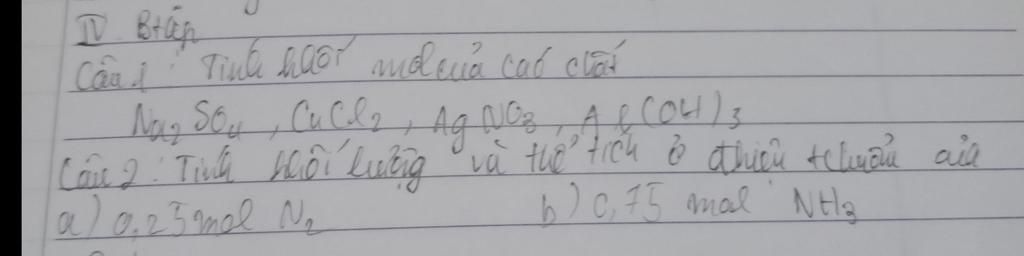 IV Btập
Câu 1: Tính khối mol của các chất
Na2SO4, CuCl2, AgNO3, Al(OH)3
Câu 2: Tính khối lượng và thể tích ở đkiện tchuẩn của
a) 0,25 mol N2 b) 0,75 mol NH3